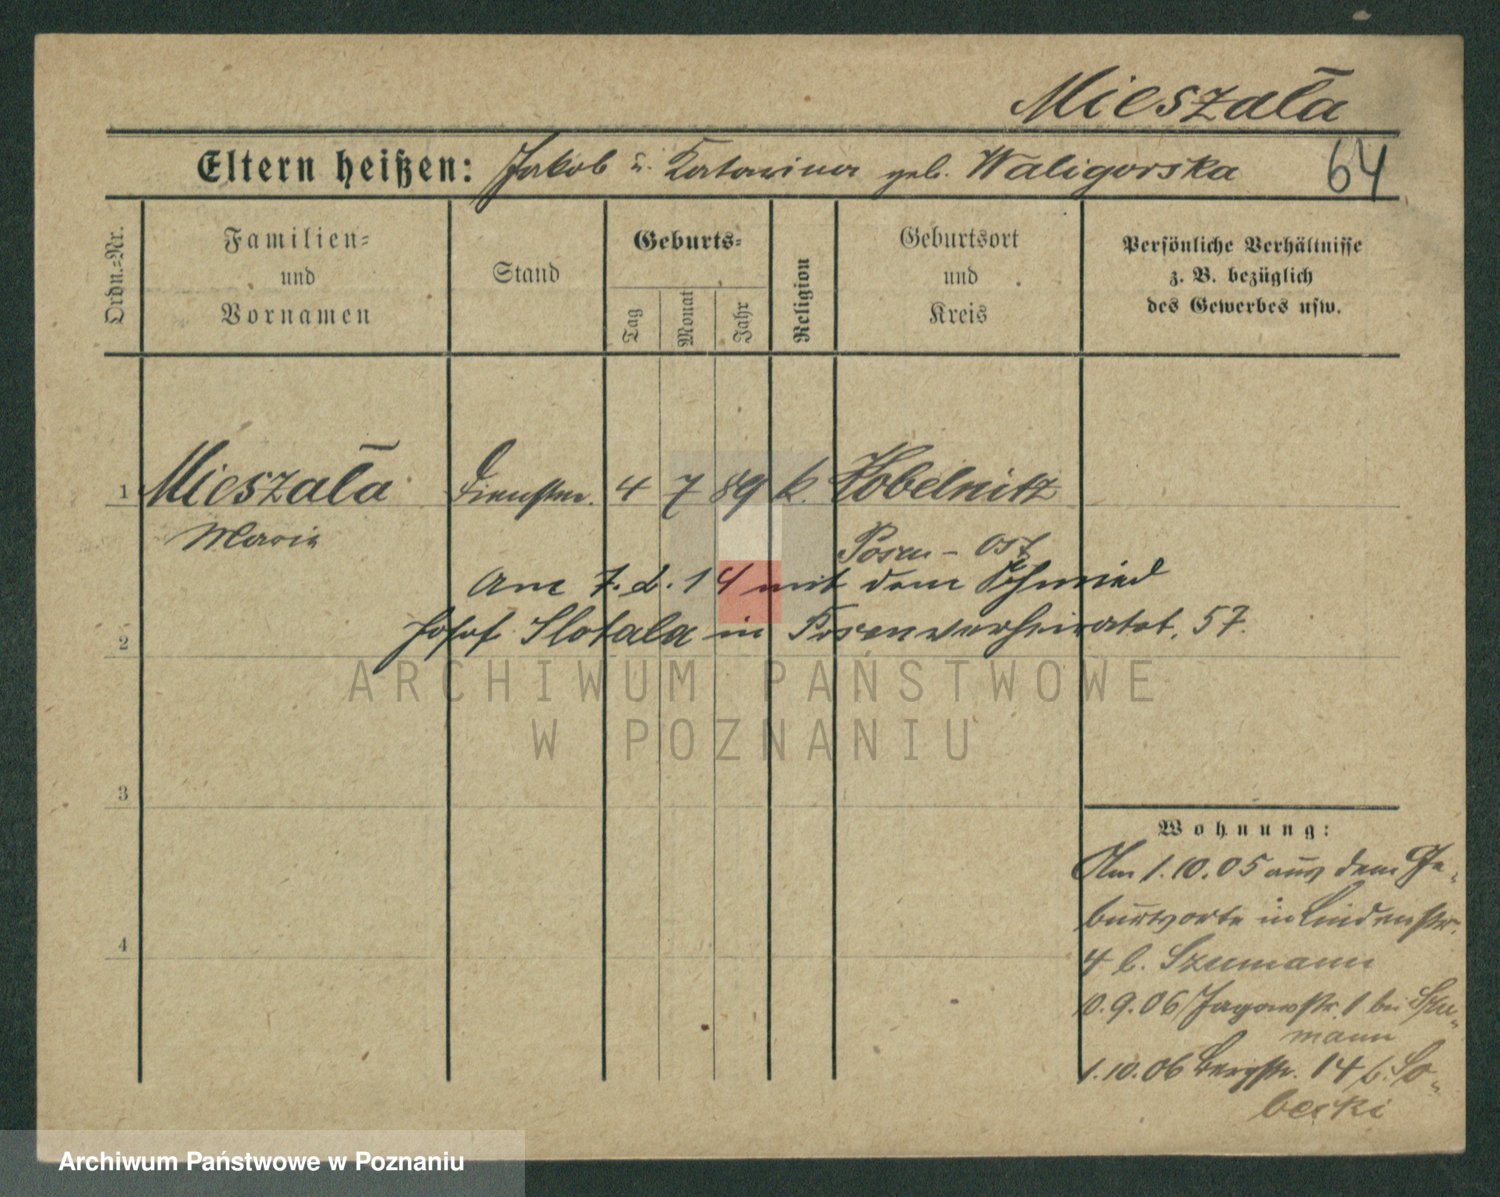 Mieszała
Eltern heißen: Jakob u. Katarina geb. Waligorska 64
Ordn.-Nr.
Familien-
und
Vornamen
Stand
Geburts-
Tag
Monat
Jahr
Religion
Geburtsort
und
Kreis
Persönliche Verhältnisse
z. B. bezüglich
des Gewerbes usw.
1 Mieszała 4 7 89 k. Kobelnitz
Maria Posen-Ost
Am 7.2.14 mit dem Schmied
2 Josef Slotala in Posen verheiratet. 57.
ARCHIWUM PAŃSTWOWE
W POZNANIU
3
Wohnung:
Am 1.10.05 aus dem Ge-
burtsorte in Lindenstr.
4 4 b. Szumann
10.9.06 Jagowstr. 1 bei Szu-
mann
1.10.06 Bergstr. 14 b. So-
becki
Archiwum Państwowe w Poznaniu